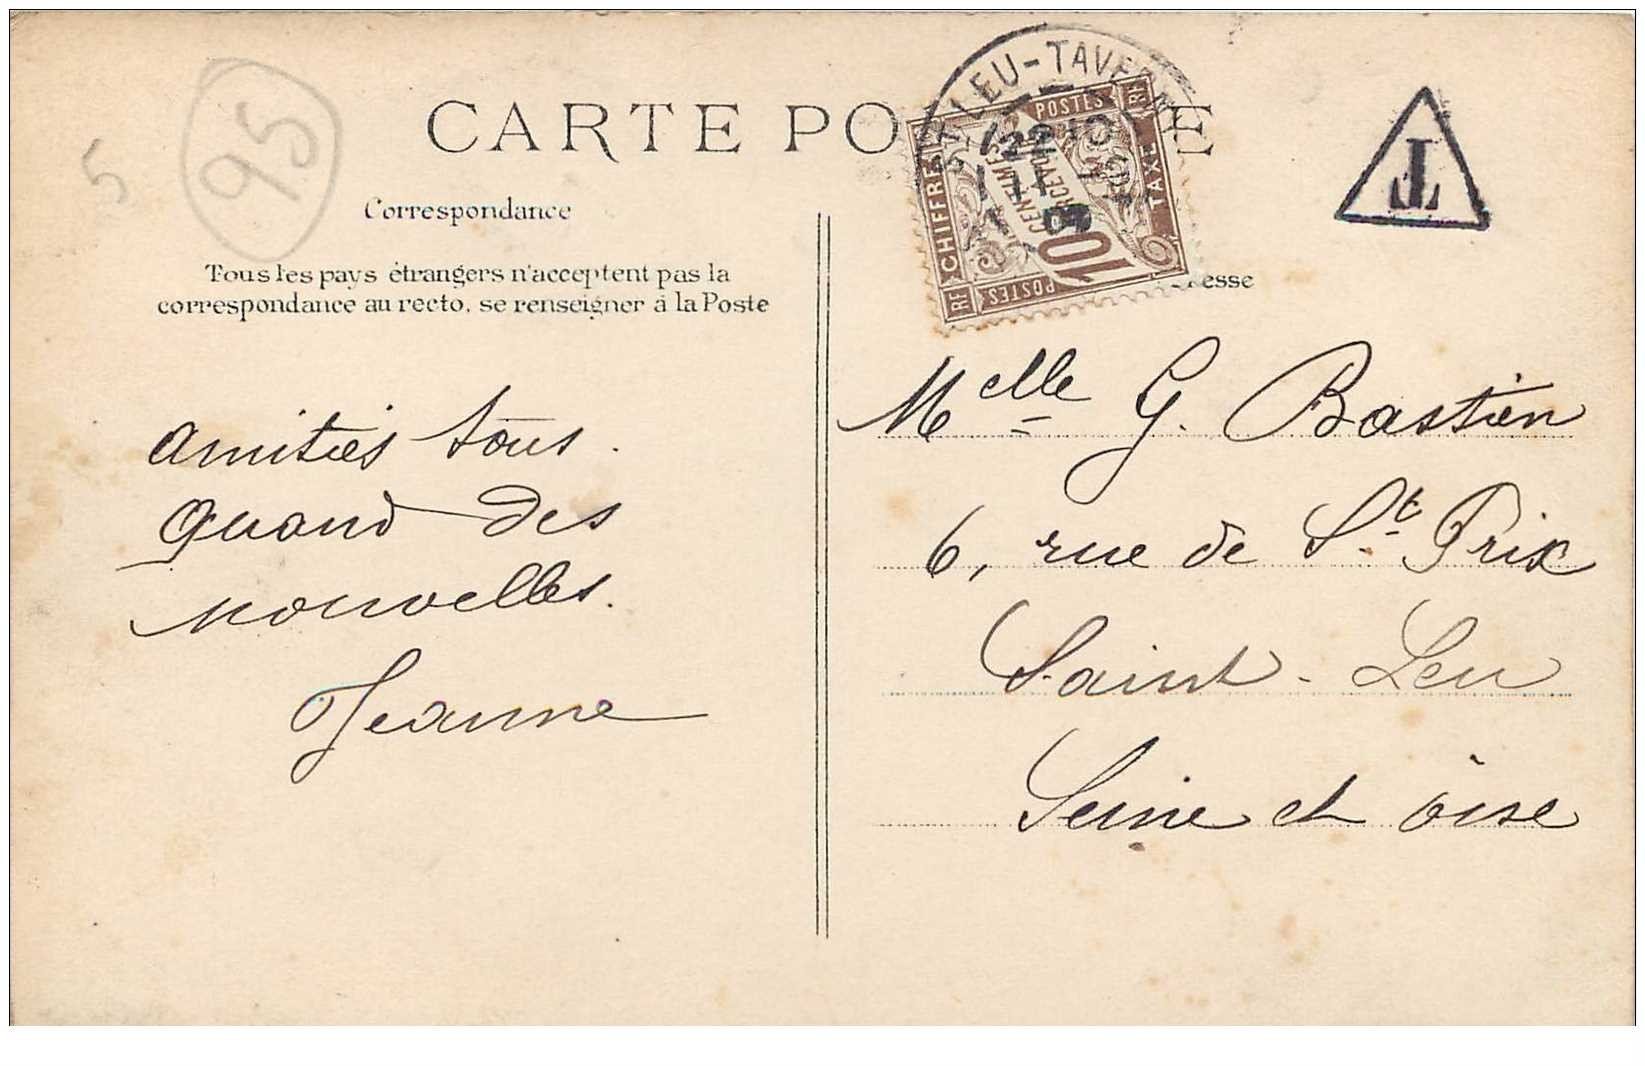 CARTE PO E
95
5
Correspondance
Tous les pays étrangers n'acceptent pas la
correspondance au recto, se renseigner à la Poste
amitiés tous.
Quand des
nouvelles.
Jeanne
ST LEU-TAVE
22
09
RF CHIFFRE RF
POSTES
TAXE
POSTES
10
CENTIMES
À
T
esse
Melle G. Bastien
6, rue de St. Prix
Saint-Leu
Seine et oise